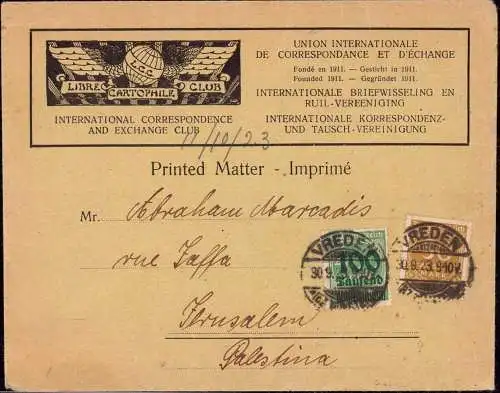 L.C.C.
LIBRE CARTOPHILE CLUB
INTERNATIONAL CORRESPONDENCE
AND EXCHANGE CLUB
UNION INTERNATIONALE
DE CORRESPONDANCE ET D'ÉCHANGE
Fondé en 1911. — Gesticht in 1911.
Founded 1911. — Gegründet 1911.
INTERNATIONALE BRIEFWISSELING EN
RUIL-VEREENIGING
INTERNATIONALE KORRESPONDENZ-
UND TAUSCH-VEREINIGUNG
11/10/23
Printed Matter - Imprimé
Mr. Abraham Marcadis
rue Jaffa
Jerusalem
Palestina
VREDEN
30.9.
100
Tausend
VREDEN
30.9.23.9-10V.